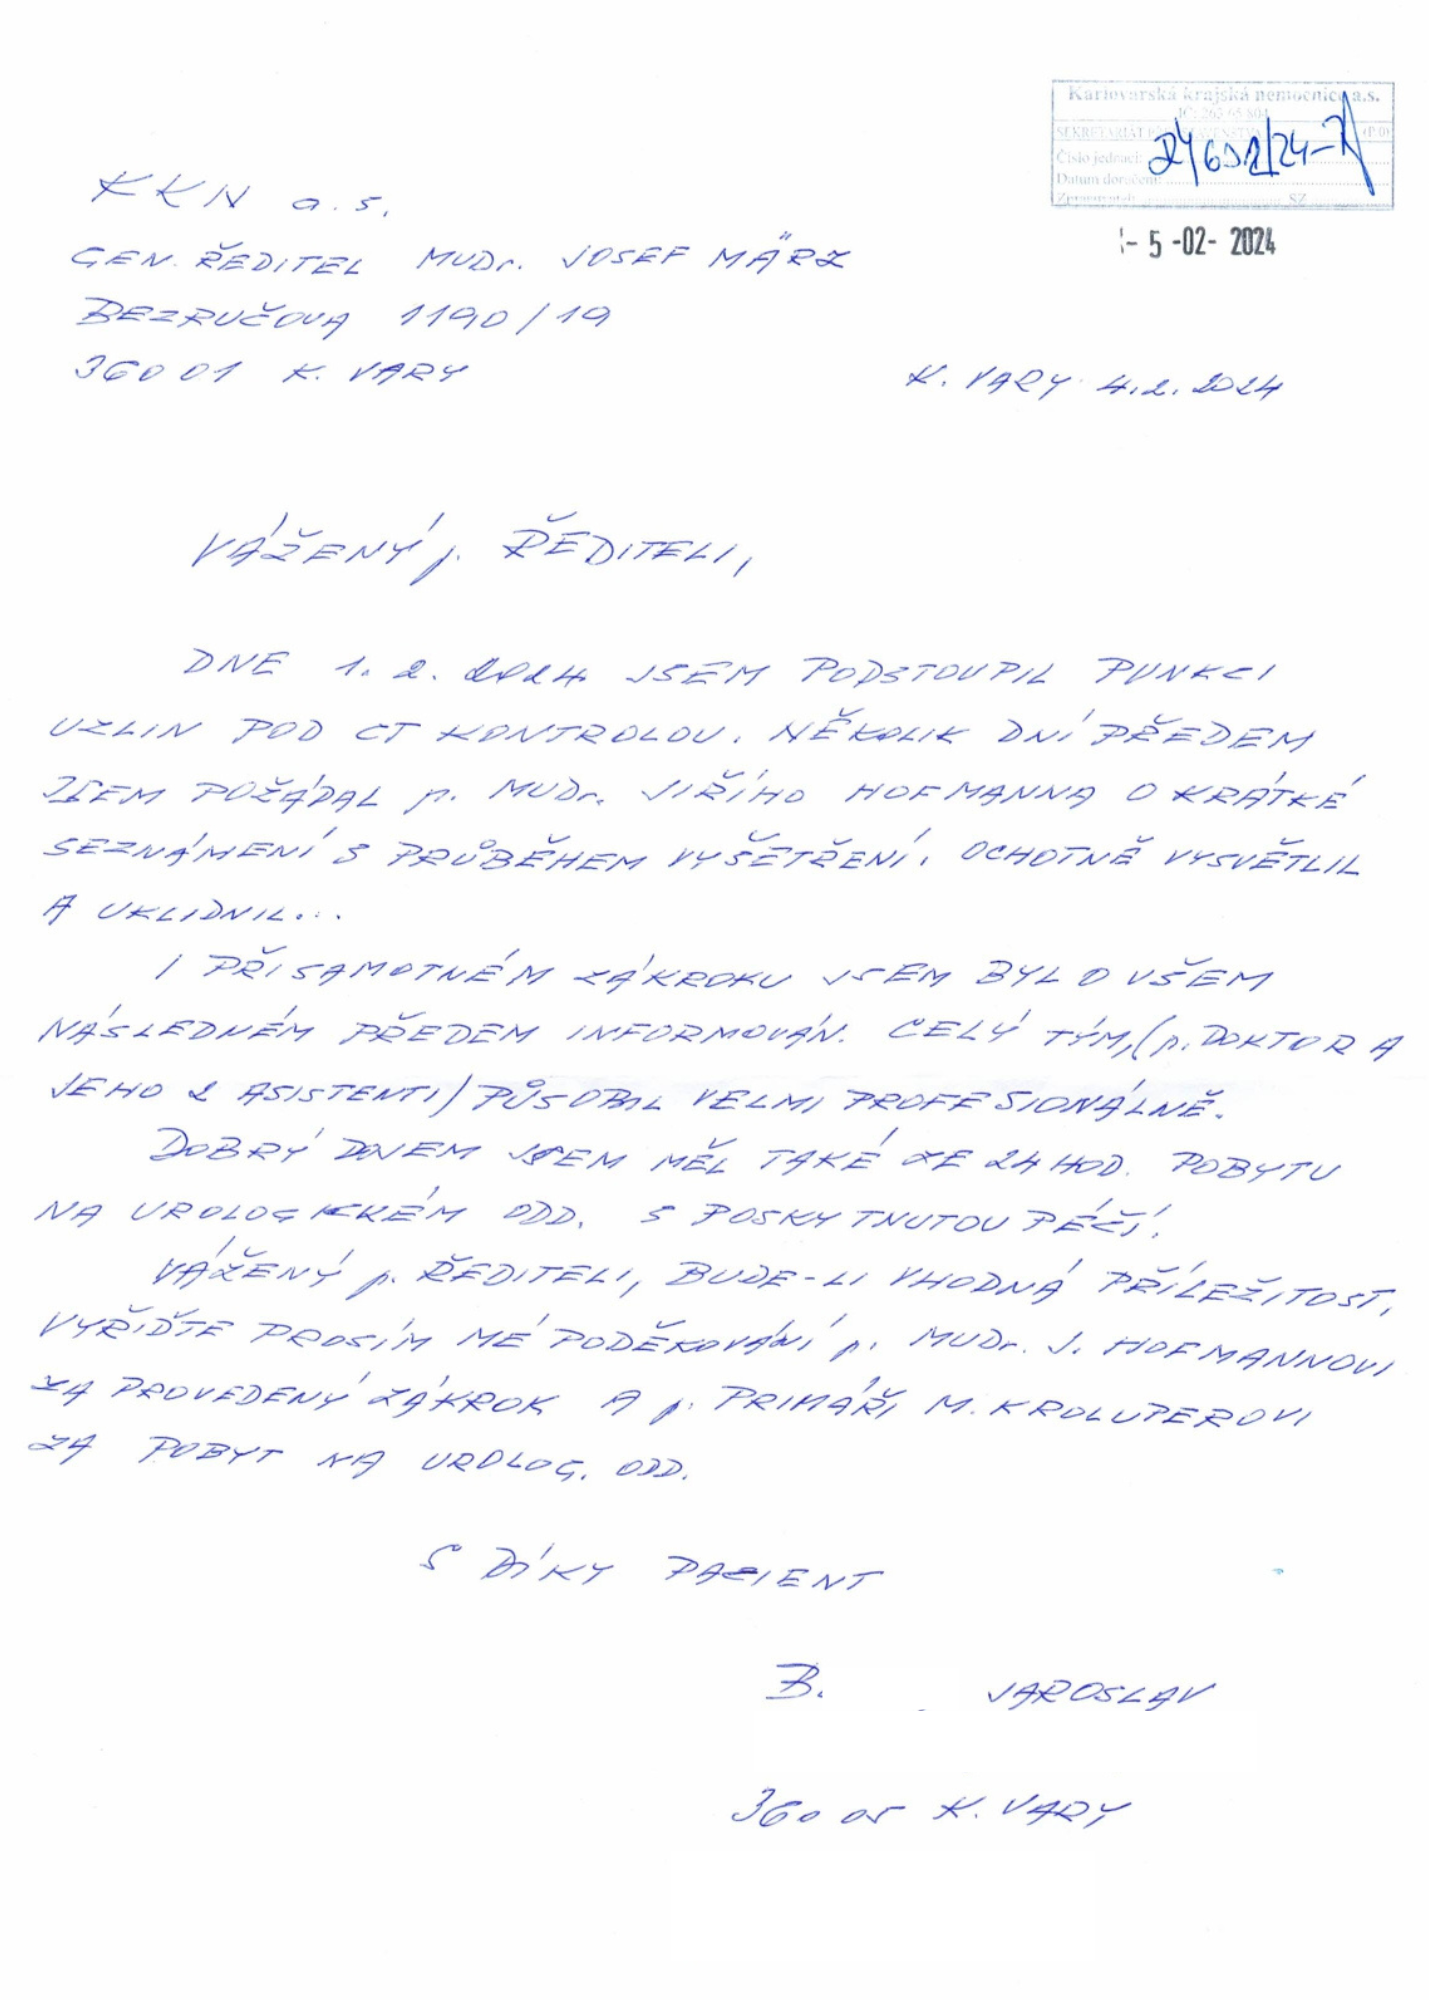 Karlovarská krajská nemocnice a.s.
IČ: 263 65 804
SEKRETARIÁT
Číslo jednací:
Datum doručení:
Zpracovatel: SZ
- 5 -02- 2024
KKN a.s.
GEN. ŘEDITEL MUDr. JOSEF MÄRZ
BEZRUČOVA 1190/19
360 01 K. VARY
K. VARY 4.2.2024
VÁŽENÝ p. ŘEDITELI,
DNE 1.2.2024 JSEM PODSTOUPIL PUNKCI
UZLIN POD CT KONTROLOU. NĚKOLIK DNÍ PŘEDEM
JSEM POŽÁDAL p. MUDr. JIŘÍHO HOFMANNA O KRÁTKÉ
SEZNÁMENÍ S PRŮBĚHEM VYŠETŘENÍ. OCHOTNĚ VYSVĚTLIL
A UKLIDNIL...
I PŘI SAMOTNÉM ZÁKROKU JSEM BYL O VŠEM
NÁSLEDNÉM PŘEDEM INFORMOVÁN. CELÝ TÝM, (p. DOKTOR A
JEHO 2 ASISTENTI) PŮSOBIL VELMI PROFESIONÁLNĚ.
DOBRÝ DOJEM JSEM MĚL TAKÉ ZE 24 HOD. POBYTU
NA UROLOGICKÉM ODD. S POSKYTNUTOU PÉČÍ.
VÁŽENÝ p. ŘEDITELI, BUDE-LI VHODNÁ PŘÍLEŽITOST,
VYŘIĎTE PROSÍM MÉ PODĚKOVÁNÍ p. MUDr. J. HOFMANNOVI
ZA PROVEDENÝ ZÁKROK A p. PRIMÁŘI M. KROLUPEROVI
ZA POBYT NA UROLOG. ODD.
S DÍKY PACIENT
B. JAROSLAV
360 05 K. VARY